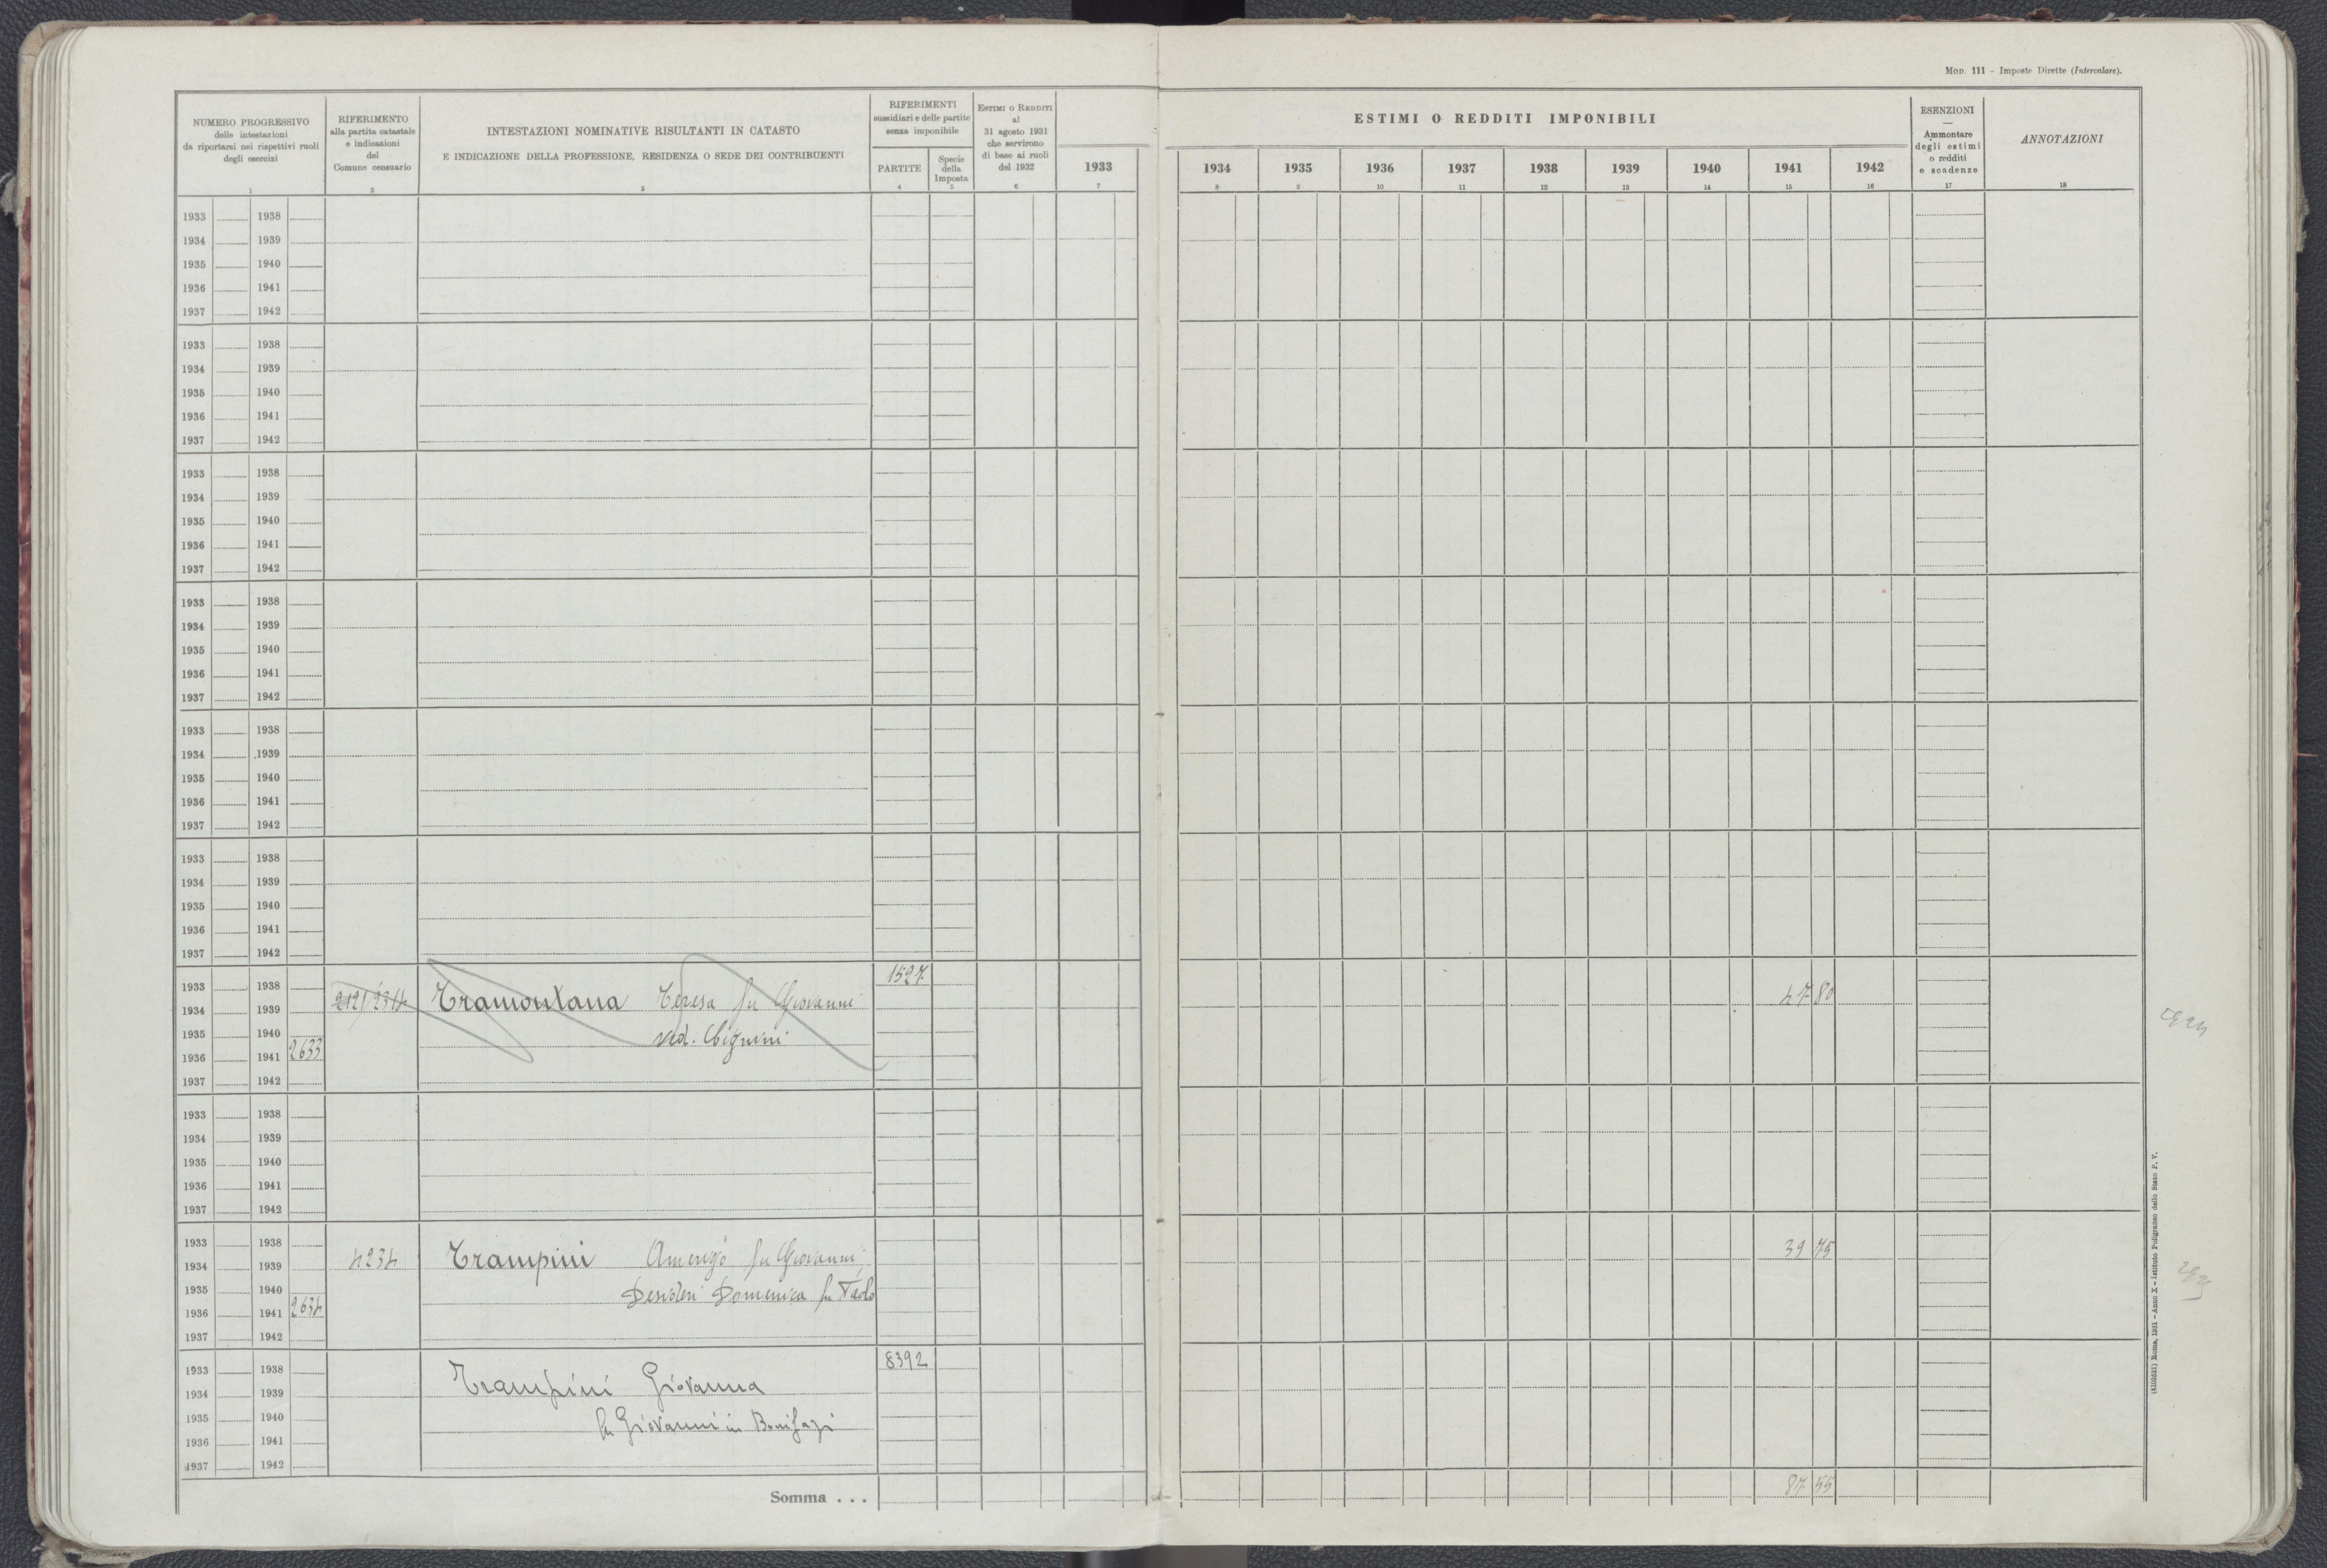 Mod. 111 - Imposte Dirette (Intercalare).
NUMERO PROGRESSIVO
delle intestazioni
da riportarsi nei rispettivi ruoli
degli esercizi
1
RIFERIMENTO
alla partita catastale
e indicazioni
del
Comune censuario
2
INTESTAZIONI NOMINATIVE RISULTANTI IN CATASTO
E INDICAZIONE DELLA PROFESSIONE, RESIDENZA O SEDE DEI CONTRIBUENTI
3
RIFERIMENTI
sussidiari e delle partite
senza imponibile
PARTITE
4
Specie
della
Imposta
5
Estimi o Redditi
al
31 agosto 1931
che servirono
di base ai ruoli
del 1932
6
ESTIMI O REDDITI IMPONIBILI
1933 1934 1935 1936 1937 1938 1939 1940 1941 1942
7 8 9 10 11 12 13 14 15 16
ESENZIONI
—
Ammontare
degli estimi
o redditi
e scadenze
17
ANNOTAZIONI
18
1933 1938
1934 1939
1935 1940
1936 1941
1937 1942
1933 1938
1934 1939
1935 1940
1936 1941
1937 1942
1933 1938
1934 1939
1935 1940
1936 1941
1937 1942
1933 1938
1934 1939
1935 1940
1936 1941
1937 1942
1933 1938
1934 1939
1935 1940
1936 1941
1937 1942
1933 1938
1934 1939
1935 1940
1936 1941
1937 1942
1933 1938 1527
1934 1939 Tramontana Teresa fu Giovanni 47 80
1935 1940 ved. Cignini
1936 1941 2633
1937 1942
1933 1938
1934 1939
1935 1940
1936 1941
1937 1942
1933 1938 39 75
1934 1939 4234 Trampini Amerigo fu Giovanni,
1935 1940 Desideri Domenica fu Paolo
1936 1941 2634
1937 1942
1933 1938 8392
1934 1939 Trampini Giovanna
1935 1940 fu Giovanni in Bonifazi
1936 1941
1937 1942
Somma . . . 87 55
(4105531) Roma, 1931 - Anno X - Istituto Poligrafico dello Stato P. V.